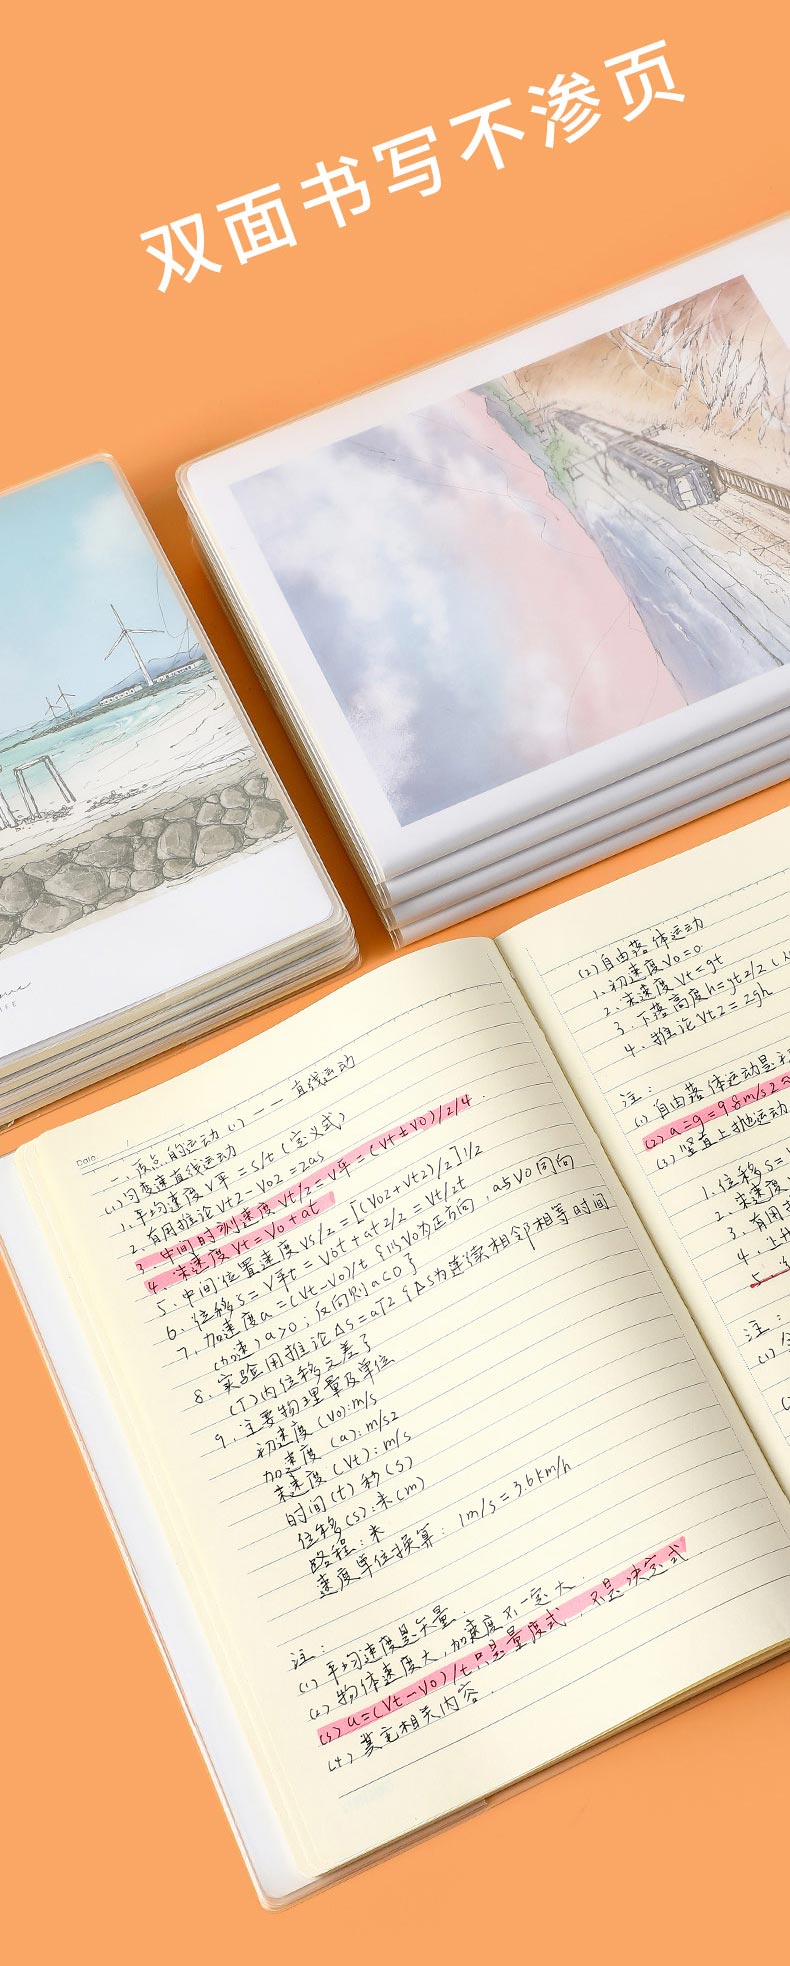 双面书写不渗页
Date
一、质点的运动(1)――直线运动
(1)匀变速直线运动
1、平均速度V平=S/t(定义式)
2、有用推论Vt2-Vo2=2as
3、中间时刻速度Vt/2=V平=(Vt±V0)/2/4.
4、末速度Vt=Vo+at
5、中间位置速度Vs/2=[(Vo2+Vt2)/2]1/2
6、位移S=V平t=Vot+at2/2=Vt/2t
7、加速度a=(Vt-Vo)/t{以Vo为正方向,a与Vo同向
(加速)a>0;反向则a<0}
8、实验用推论ΔS=aT2{ΔS为连续相邻相等时间
(T)内位移之差}
9、主要物理量及单位
初速度(Vo):m/s
加速度(a):m/s2
末速度(Vt):m/s
时间(t)秒(s)
位移(s):米(m)
路程:米
速度单位换算:1m/s=3.6km/h
注:
(1)平均速度是矢量.
(2)物体速度大,加速度不一定大.
(3)a=(Vt-Vo)/t只是量度式,不是决定式
(4)其它相关内容.
(2)自由落体运动
1、初速度Vo=0
2、末速度Vt=gt
3、下落高度h=gt2/2(
4、推论Vt2=2gh
注:
(1)自由落体运动是
(2)a=g=9.8m/s2≈
(3)竖直上抛运动
1、位移S=
2、末速度
3、有用
4、上升
5、
注:
(1)